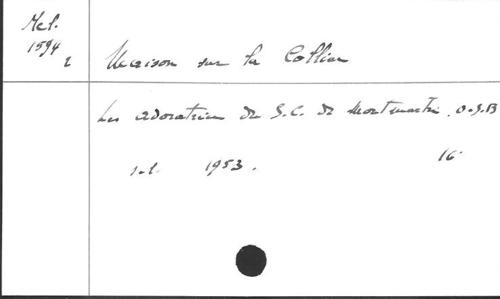 Mel.
1594
2
Maison sur la Colline
Les adoratrices du S.C. de Montmartre. O.S.B
s.l. 1953. 16°